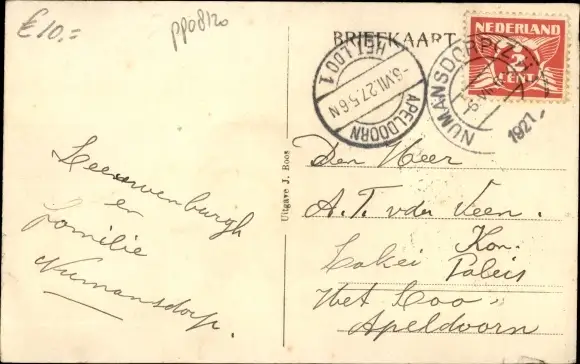 €10.=
pp08120
BRIEFKAART
NEDERLAND
2
CENT
NUMANSDORP (Z.H.)
1927
HET LOO 1
-6.VII.27.5-6N
APELDOORN
Leeuwenburgh
en
familie
Numansdorp.
Uitgave J. Roos
Den Heer
A. T. v der Veen.
Lakei Kon.
Paleis
Het Loo
Apeldoorn